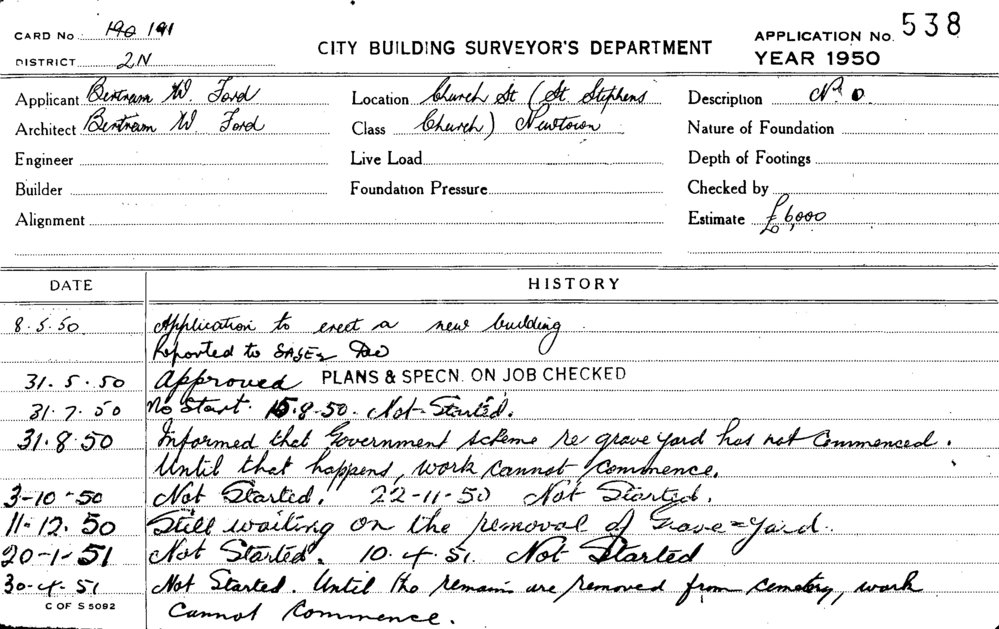 CARD No 190 191
DISTRICT 2N
CITY BUILDING SURVEYOR'S DEPARTMENT
APPLICATION No. 538
YEAR 1950
Applicant Bertram W. Ford
Architect Bertram W Ford
Engineer
Builder
Alignment
Location Church St (St. Stephens
Class Church) Newtown
Live Load
Foundation Pressure
Description
Nature of Foundation
Depth of Footings
Checked by
Estimate £6,000
DATE HISTORY
8.5.50 Application to erect a new building
Reported to
31.5.50 Approved PLANS & SPECN. ON JOB CHECKED
31.7.50 No Start. 15.8.50. Not Started.
31.8.50 Informed that Government scheme re grave yard has not Commenced.
Until that happens, work cannot commence.
3-10-50 Not Started. 22-11-50 Not Started.
11-12.50 Still waiting on the removal of Grave=Yard.
20-1-51 Not Started. 10.4.51. Not Started
30-4.51 Not Started. Until the remains are removed from cemetery, work
Cannot Commence.
C OF S 5092